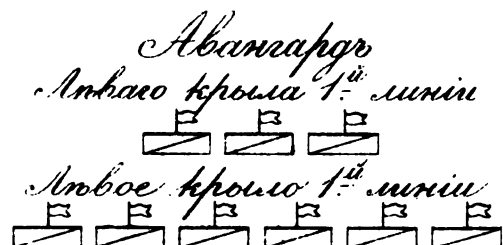 Авангардъ
Лѣваго крыла 1-й линіи
Лѣвое крыло 1-й линіи